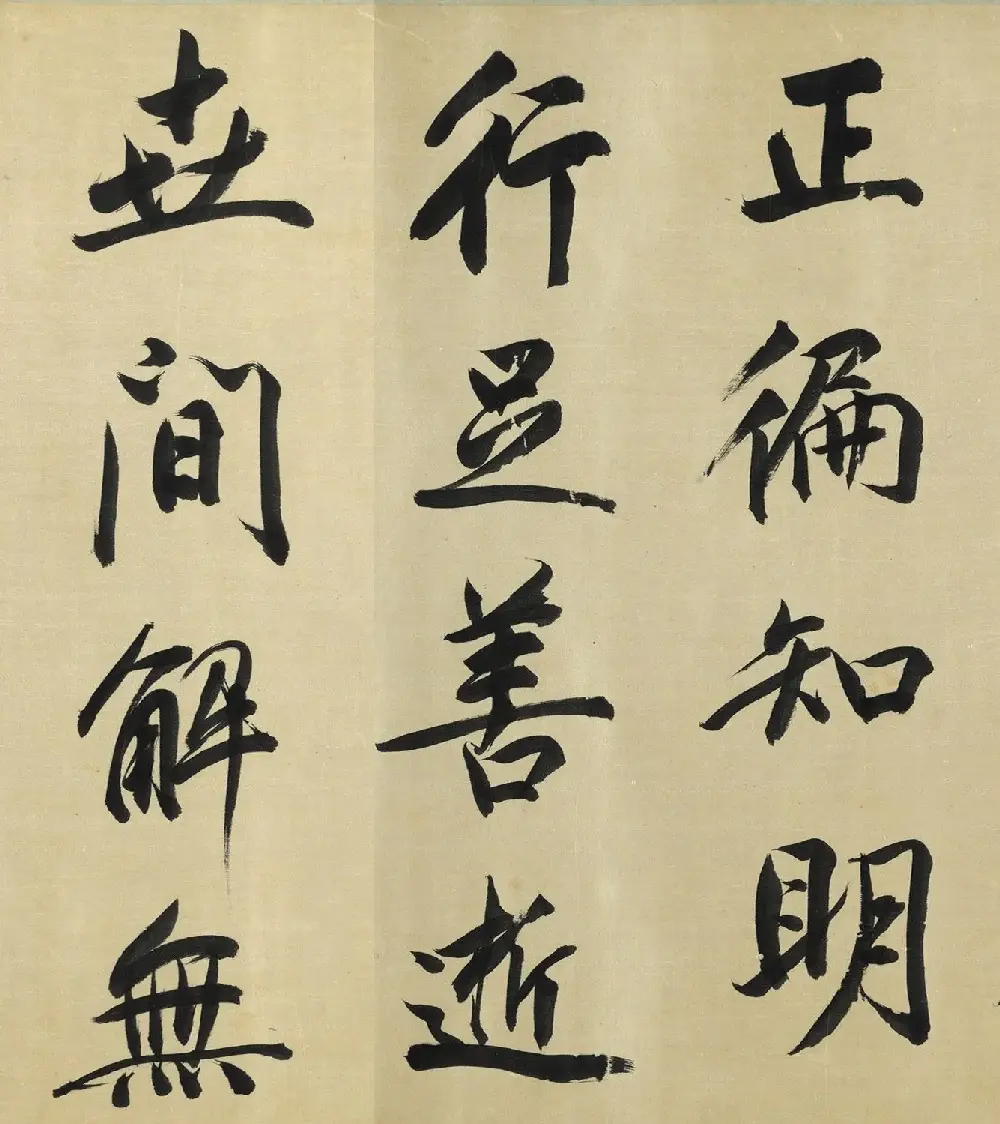 正徧知明
行足善逝
世間解無